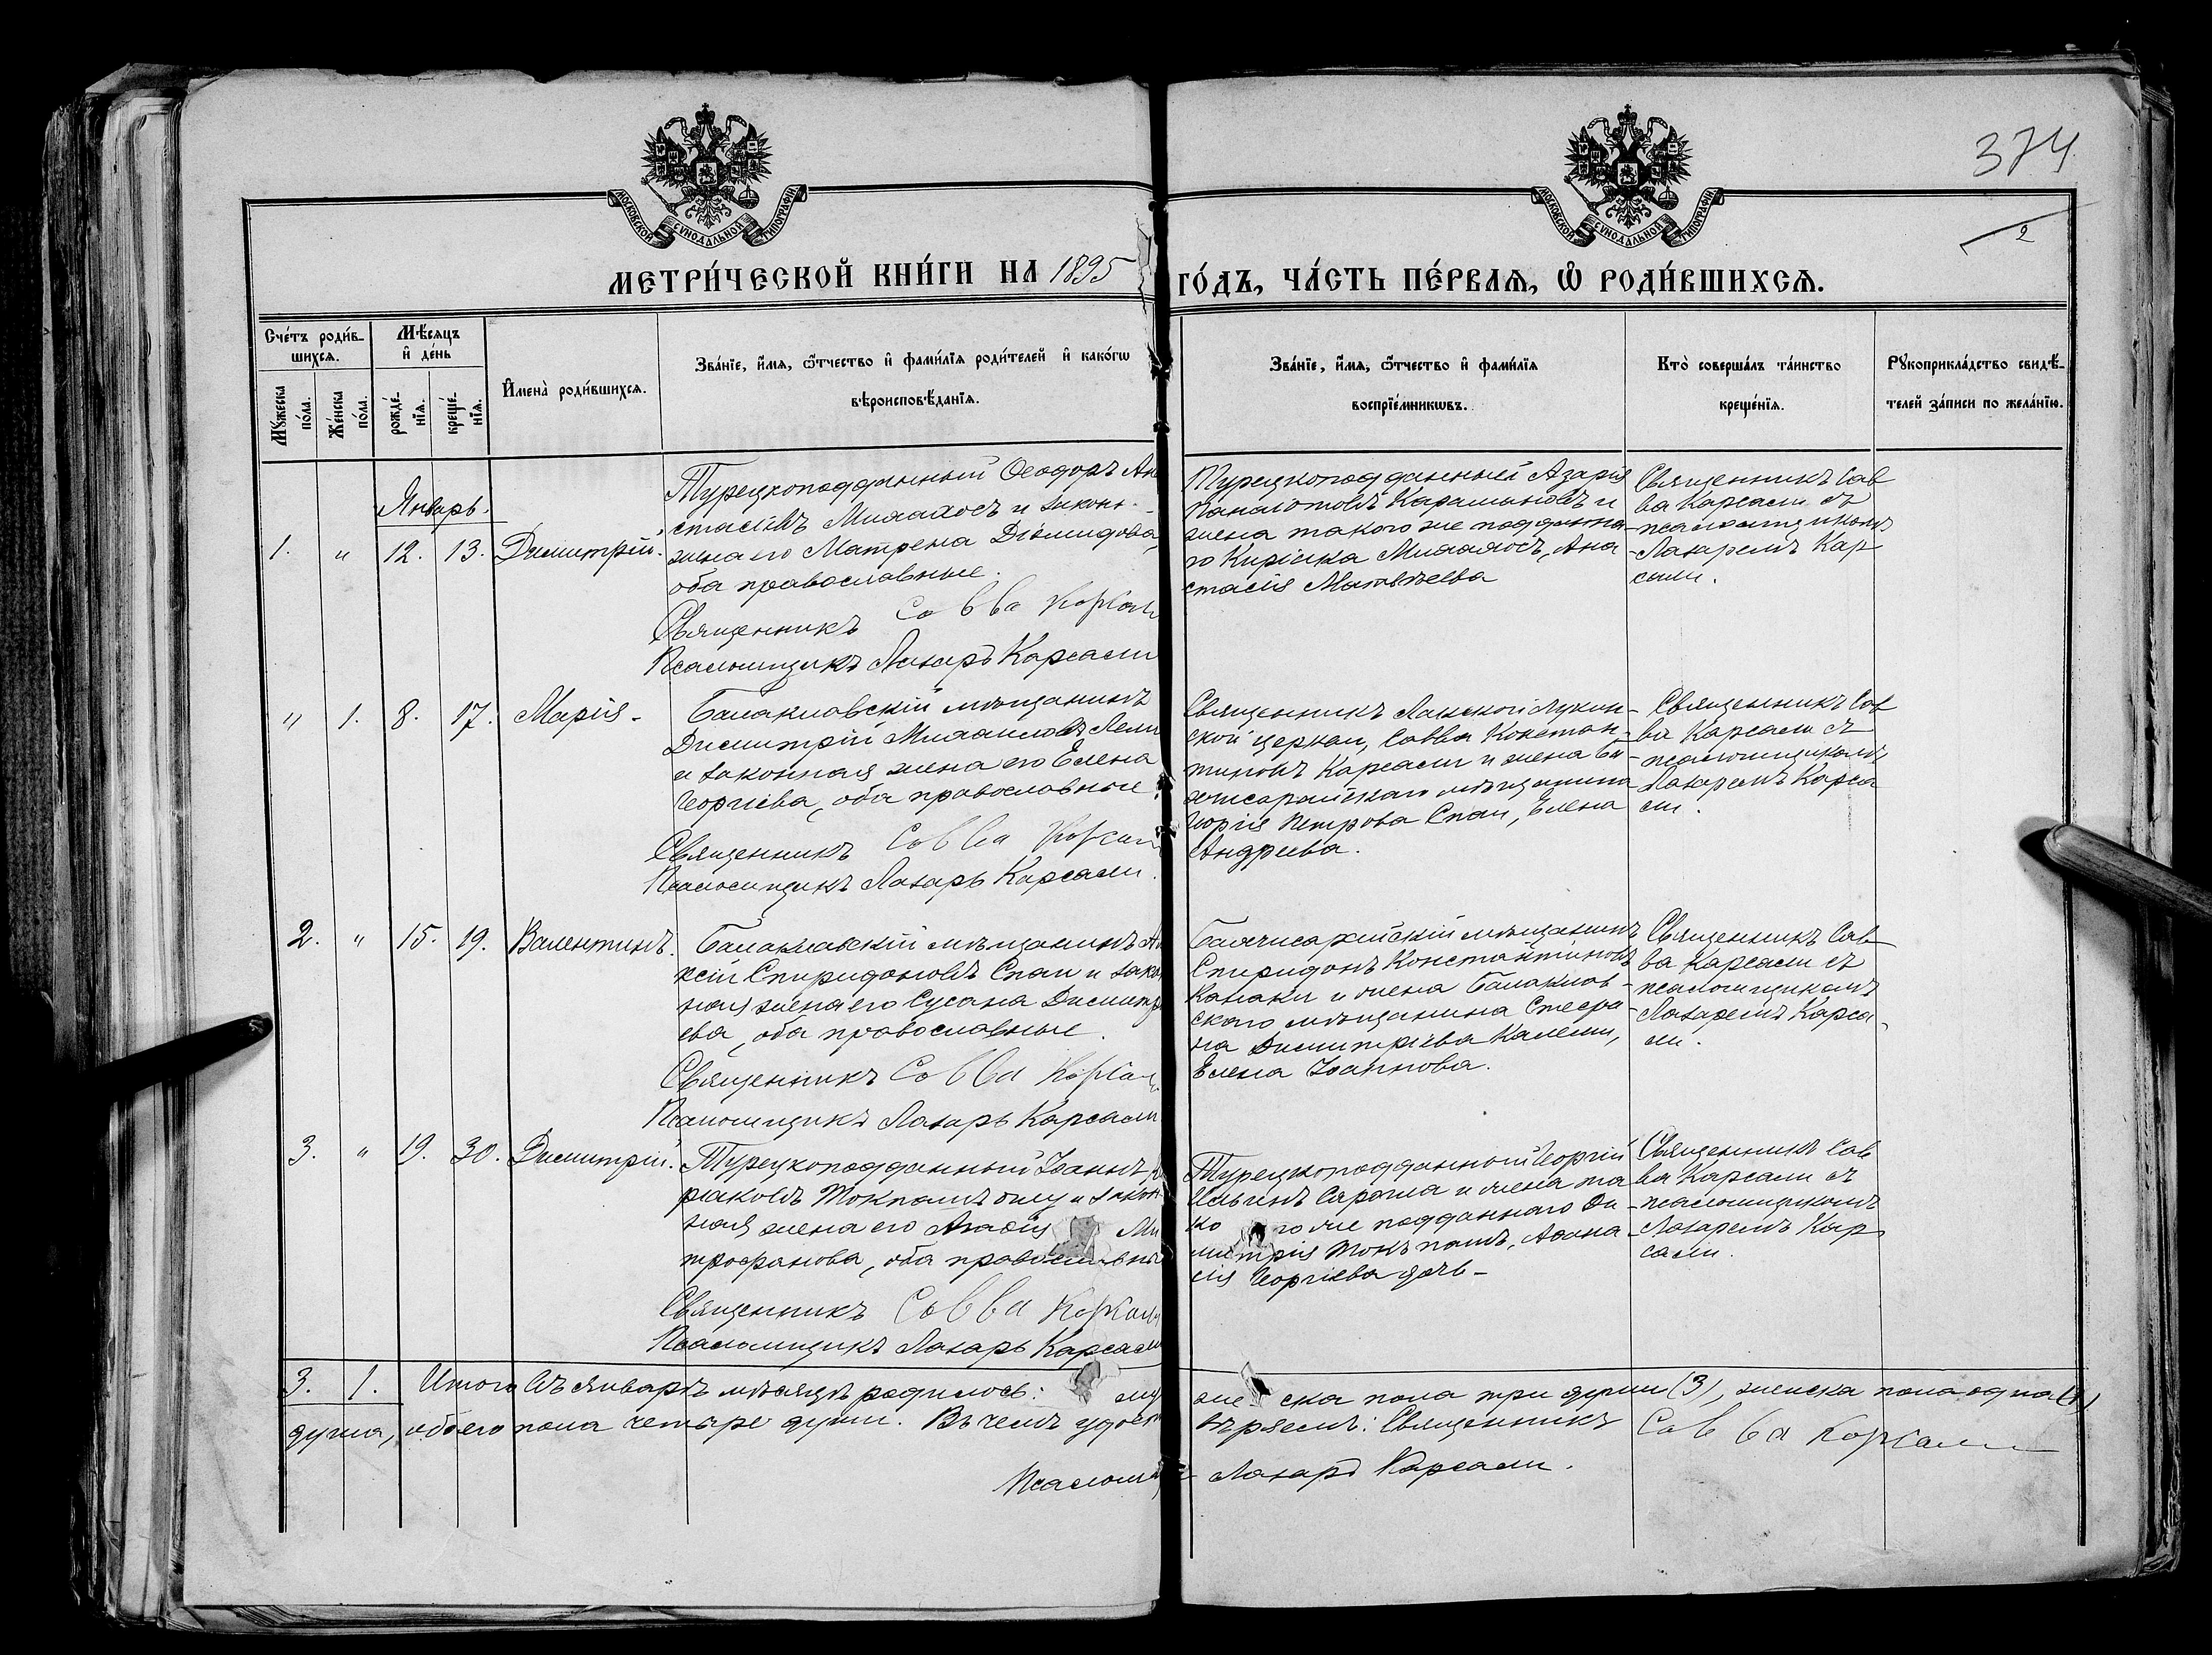 374
2
МОСКОВСКОЙ СѴНОДАЛЬНОЙ ТИПОГРАФІИ
МОСКОВСКОЙ СѴНОДАЛЬНОЙ ТИПОГРАФІИ
МЕТРИ́ЧЕСКОЙ КНИ́ГИ НА 1895 ГО́ДЪ, ЧА́СТЬ ПЕ́РВАѦ, Ѡ҆ РОДИ́ВШИХСѦ.
Сче́тъ роди́в-
шихсѧ.
Мѣ́сяцъ
и҆ де́нь
Мꙋ́жеска по́ла.
Же́нска по́ла.
рожде́-нїѧ.
креще́-нїѧ.
И҆мена̀ роди́вшихсѧ.
Зва́нїе, и҆́мѧ, ѻ҆́тчество и҆ фами́лїѧ роди́телей и҆ како́гѡ
вѣроисповѣ́данїѧ.
Зва́нїе, и҆́мѧ, ѻ҆́тчество и҆ фами́лїѧ
воспрїе́мникѡвъ.
Кто̀ соверша́лъ та́инство
креще́нїѧ.
Рꙋкоприкла́дство свидѣ́-
телей за́писи по жела́нїю.
Январь.
1. " 12. 13. Димитрій.
Турецкоподданный Ѳеодоръ Ана
стасіевъ и законн.
жена его Матрена Діомидова,
оба православные.
Священникъ Савва Карсали
Псаломщикъ Лазарь Карсали
Турецкоподданный Азарія
Панаіотовъ Карамановъ и
жена такого же поддана-
го Киріяка Ана
стасія Матвѣева
Священникъ Сав
ва Карсали съ
псаломщикомъ
Лазаремъ Кар
сали.
" 1. 8. 17. Марія-
Балаклавскій мѣщанинъ
Димитрій Михаиловъ
и законная жена его Елена
Георгіева, оба православные.
Священникъ Савва Карсали
Псаломщикъ Лазарь Карсали.
Священникъ
ской церкви, Савва Констан-
тиновъ Карсали и жена Ба-
хчисарайскаго мѣщанина
Георгія Петрова Спаи, Елена
Андреева.
Священникъ Сав
ва Карсали съ
псаломщикомъ
Лазаремъ Карса
ли.
2. " 15. 19. Валентинъ.
Балаклавскій мѣщанинъ Але
ксій Спиридоновъ Спаи и закон
ная жена его Сусана Димитрі
ева, оба православные.
Священникъ Савва Карсали
Псаломщикъ Лазарь Карсали
Бахчисарайскій мѣщанинъ
Спиридонъ Константиновъ
Канаки и жена Балаклав-
скаго мѣщанина Стефа-
на Димитріева
Елена Іоаннова.
Священникъ Сав
ва Карсали съ
псаломщикомъ
Лазаремъ Карса-
ли.
3. " 19. 30. Димитрій.
Турецкоподданный Іоаннъ Ки
ріаковъ и закон
ная жена его Ми
трофанова, оба православны
Священникъ Савва Карсали
Псаломщикъ Лазарь Карсали
Турецкоподданный Георгій
Ильинъ и жена та
ко го же подданнаго Ди-
митрія Аѳана-
сія Георгіева дочь-
Священникъ Сав
ва Карсали съ
псаломщикомъ
Лазаремъ Кар
сали.
3. 1. Итого въ январѣ мѣсяцѣ родилось: му же ска пола три души (3), женска пола одна (1)
душа, обоего пола четыре души. Въ чемъ удостовѣряемъ: Священникъ Савва Карсали
Псаломщ Лазарь Карсали.